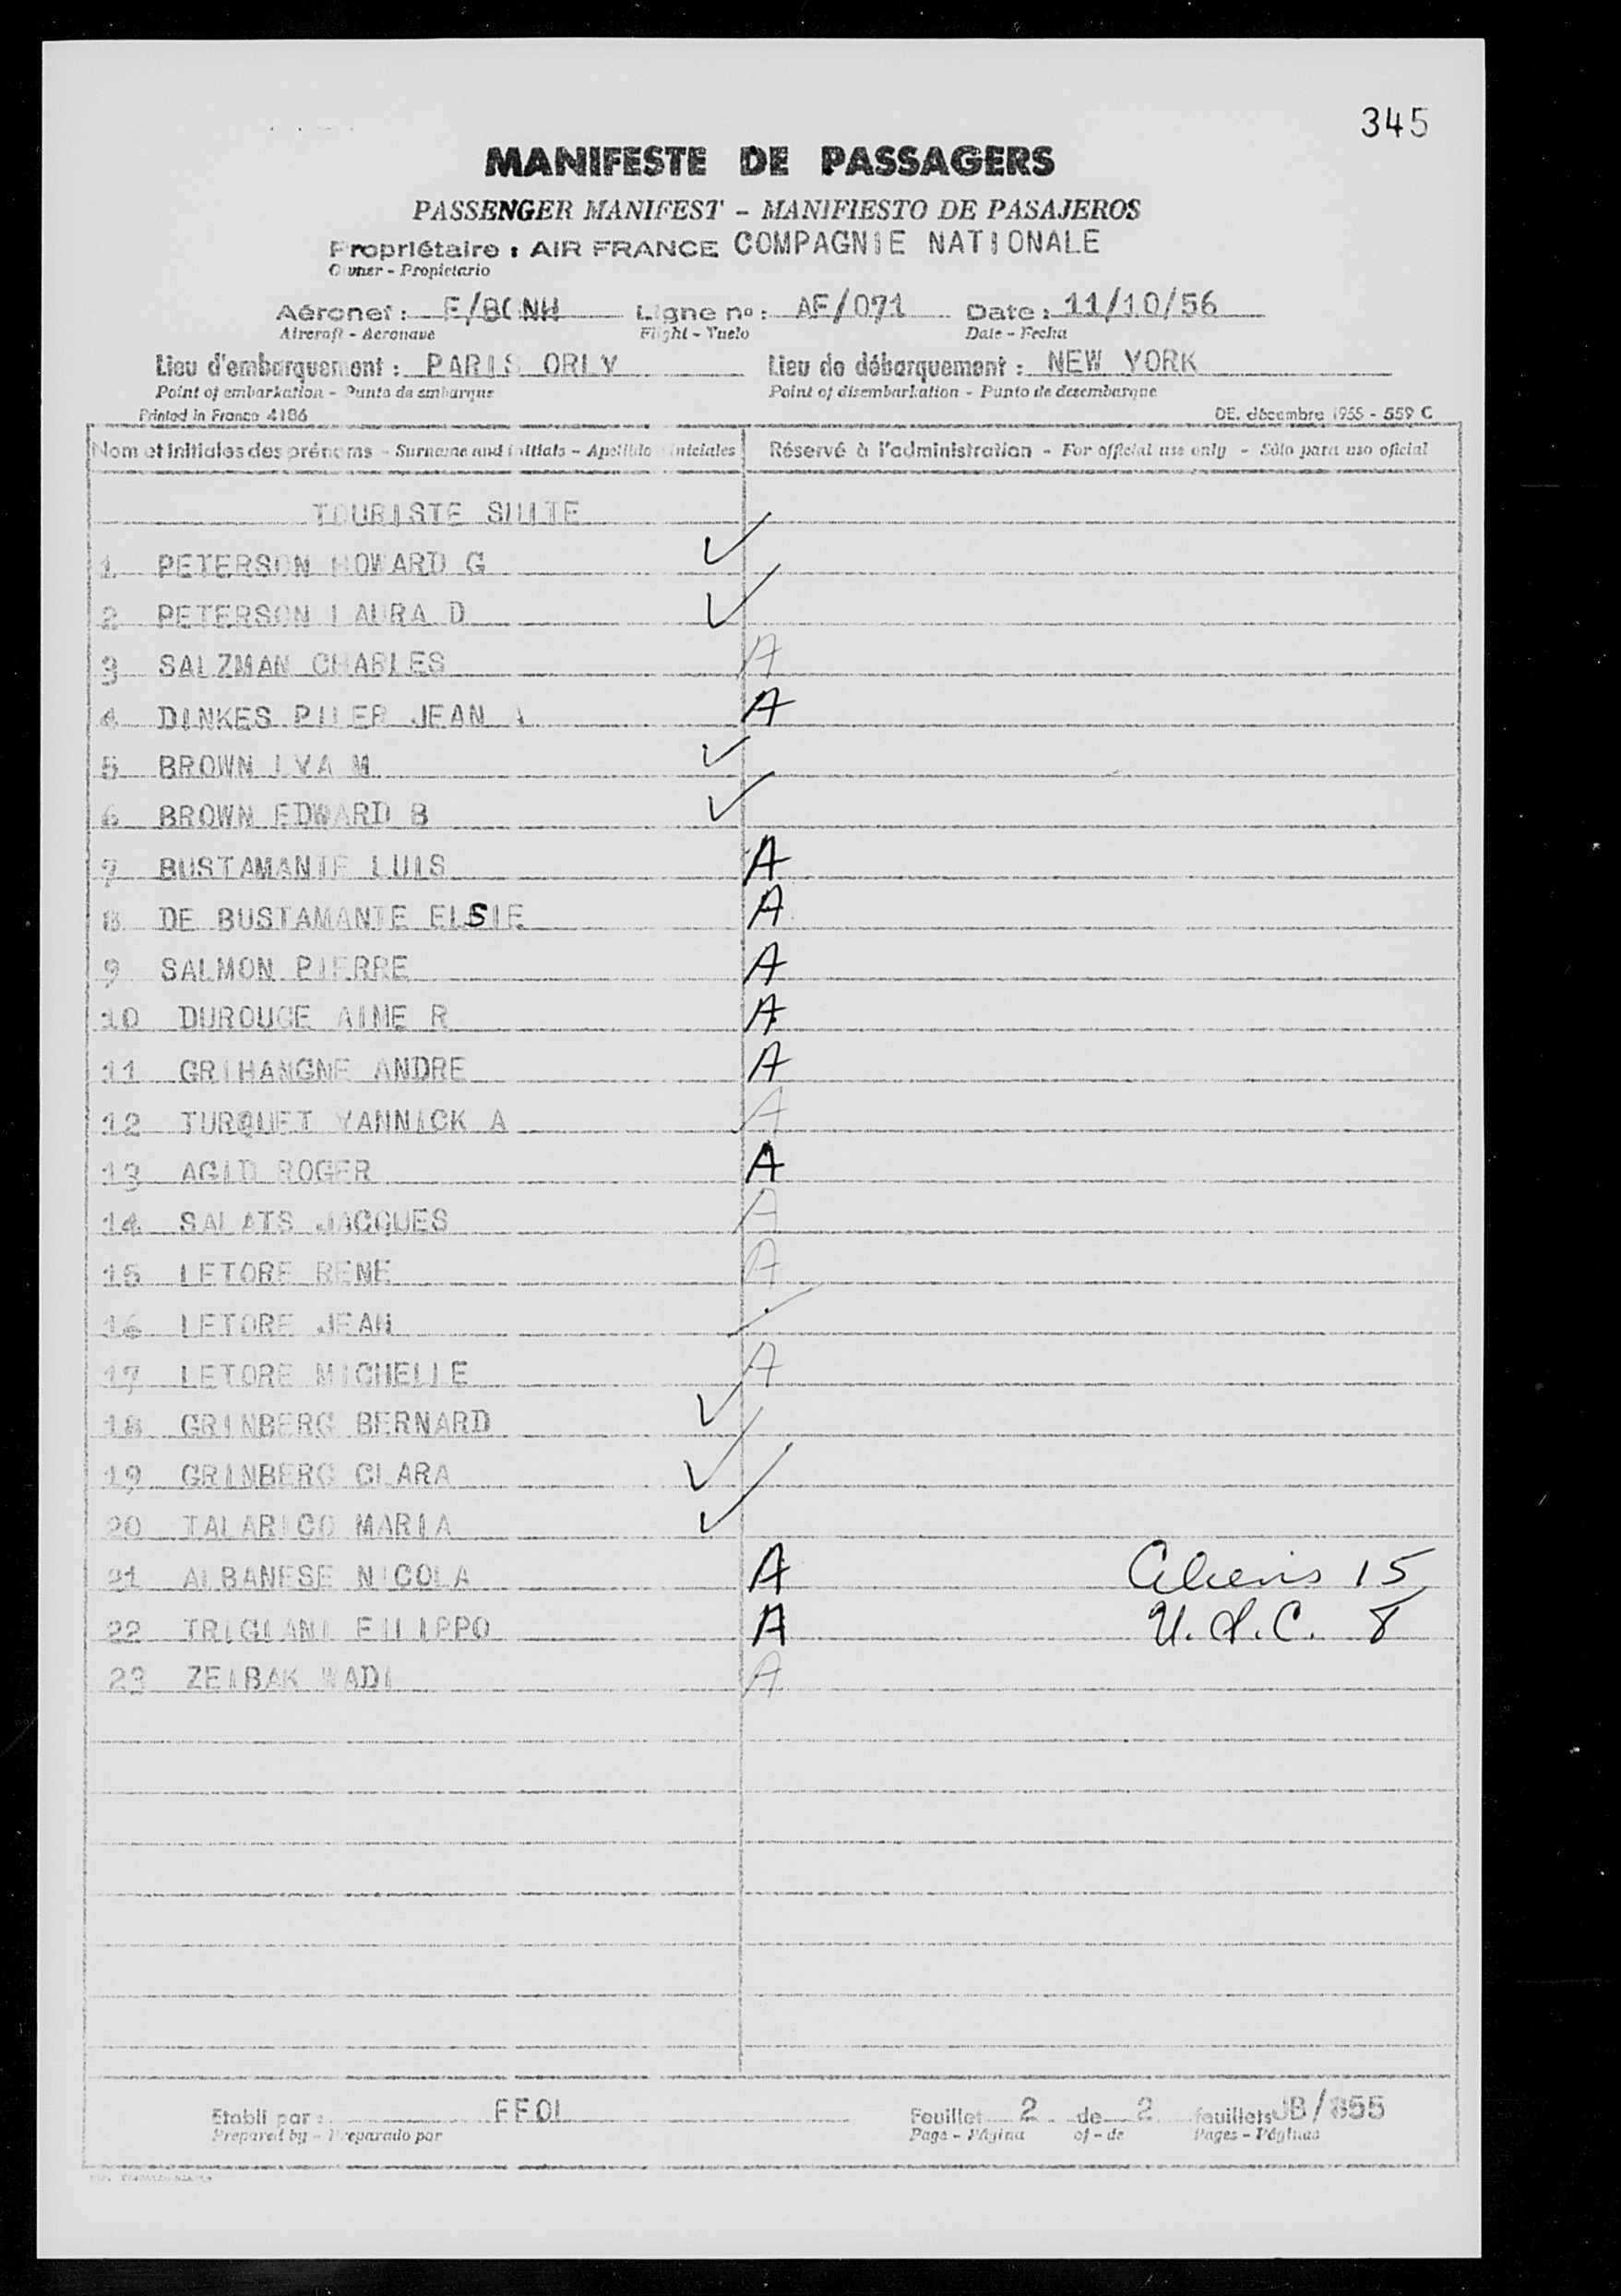 345
MANIFESTE DE PASSAGERS
PASSENGER MANIFEST - MANIFIESTO DE PASAJEROS
Propriétaire : AIR FRANCE COMPAGNIE NATIONALE
Owner - Propietario
Aéronef : Ligne nº : AF/071 Date : 11/10/56
Aircraft - Aeronave Flight - Vuelo Date - Fecha
Lieu d'embarquement : PARIS ORLY Lieu de débarquement : NEW YORK
Point of embarkation - Punto de embarque Point of disembarkation - Punto de desembarque
Printed in France 4186 DE. décembre 1955 - 559 C
Nom et initiales des prénoms - Surname and initials - Apellido iniciales Réservé à l'administration - For official use only - Sólo para uso oficial
TOURISTE SUITE
1 PETERSON HOWARD G ✓
2 PETERSON LAURA D ✓
3 SALZMAN CHARLES A
4 DINKES JEAN A
5 BROWN IVA M ✓
6 BROWN EDWARD B ✓
7 BUSTAMANTE LUIS A
8 DE BUSTAMANTE ELSIE A
9 SALMON PIERRE A
10 DUROUGE AIME R A
11 GRIHANGNE ANDRE A
12 TURQUET YANNICK A A
13 AGID ROGER A
14 SALATS JACQUES A
15 LETORE RENE A
16 LETORE JEAN
17 LETORE MICHELLE A
18 GRINBERG BERNARD ✓
19 GRINBERG CLARA ✓
20 TALARICO MARIA ✓
21 ALBANESE NICOLA A Aliens 15
22 TRIGIANI FILIPPO A U.S.C. 8
23 ZEIBAK WADI A
Etabli par : Feuillet 2 de 2 feuillets JB/855
Prepared by - Preparado por Page - Página of - de Pages - Páginas